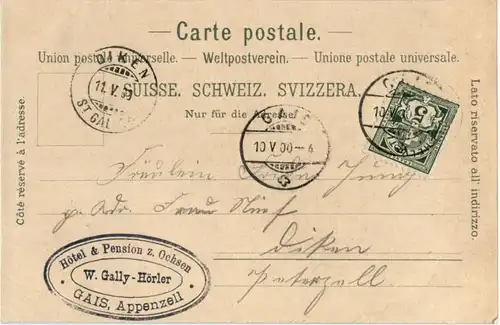 Carte postale.
Union postale universelle. — Weltpostverein. — Unione postale universale.
SUISSE. SCHWEIZ. SVIZZERA.
Nur für die Adresse.
Côté réservé à l'adresse.
Lato riservato all' indirizzo.
DIKEN
11. V. 00
ST GAL
GAIS
10 V 00 – 6
GAIS
10 V
5
Fräulein
p. Adr. Frau
Diken
Peterzell.
Hôtel & Pension z. Ochsen
W. Gally-Hörler
GAIS, Appenzell